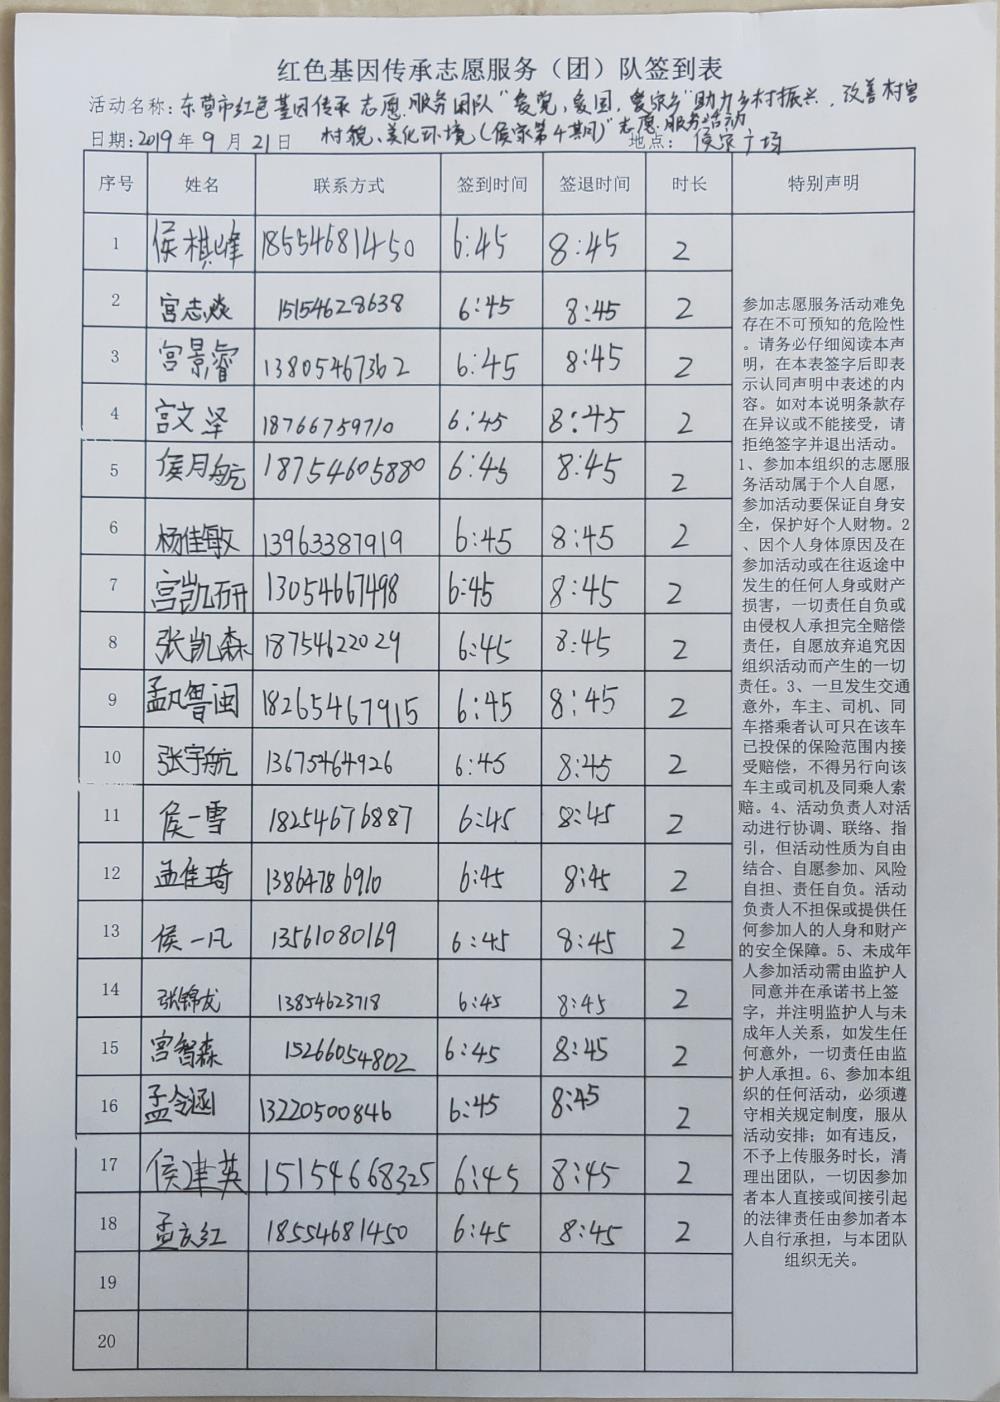 红色基因传承志愿服务（团）队签到表
活动名称：东营市红色基因传承志愿服务团队“爱党，爱国，爱家乡”助力乡村振兴，改善村容
村貌、美化环境（侯家第4期）”志愿服务活动
日期：2019年9月21日 地点：侯家广场
序号 姓名 联系方式 签到时间 签退时间 时长 特别声明
1 侯棋峰 18554681450 6:45 8:45 2
2 宫志焱 15154628638 6:45 8:45 2
3 宫景睿 13805467362 6:45 8:45 2
4 宫文泽 18766759710 6:45 8:45 2
5 侯月均元 18754605880 6:45 8:45 2
6 杨佳敏 13963387919 6:45 8:45 2
7 宫凯研 13054667498 6:45 8:45 2
8 张凯森 18754622029 6:45 8:45 2
9 孟凡粤闽 18265467915 6:45 8:45 2
10 张宇航 13675464926 6:45 8:45 2
11 侯一雪 18254676887 6:45 8:45 2
12 孟佳琦 13864786910 6:45 8:45 2
13 侯一凡 13561080169 6:45 8:45 2
14 张锦龙 13854623718 6:45 8:45 2
15 宫智森 15266054802 6:45 8:45 2
16 孟令涵 13220500846 6:45 8:45 2
17 侯建英 15154668325 6:45 8:45 2
18 孟庆红 18554681450 6:45 8:45 2
19
20
参加志愿服务活动难免
存在不可预知的危险性
。请务必仔细阅读本声
明，在本表签字后即表
示认同声明中表述的内
容。如对本说明条款存
在异议或不能接受，请
拒绝签字并退出活动。
1、参加本组织的志愿服
务活动属于个人自愿，
参加活动要保证自身安
全，保护好个人财物。2
、因个人身体原因及在
参加活动或在往返途中
发生的任何人身或财产
损害，一切责任自负或
由侵权人承担完全赔偿
责任，自愿放弃追究因
组织活动而产生的一切
责任。3、一旦发生交通
意外，车主、司机、同
车搭乘者认可只在该车
已投保的保险范围内接
受赔偿，不得另行向该
车主或司机及同乘人索
赔。4、活动负责人对活
动进行协调、联络、指
引，但活动性质为自由
结合、自愿参加、风险
自担、责任自负。活动
负责人不担保或提供任
何参加人的人身和财产
的安全保障。5、未成年
人参加活动需由监护人
同意并在承诺书上签
字，并注明监护人与未
成年人关系，如发生任
何意外，一切责任由监
护人承担。6、参加本组
织的任何活动，必须遵
守相关规定制度，服从
活动安排；如有违反，
不予上传服务时长，清
理出团队，一切因参加
者本人直接或间接引起
的法律责任由参加者本
人自行承担，与本团队
组织无关。